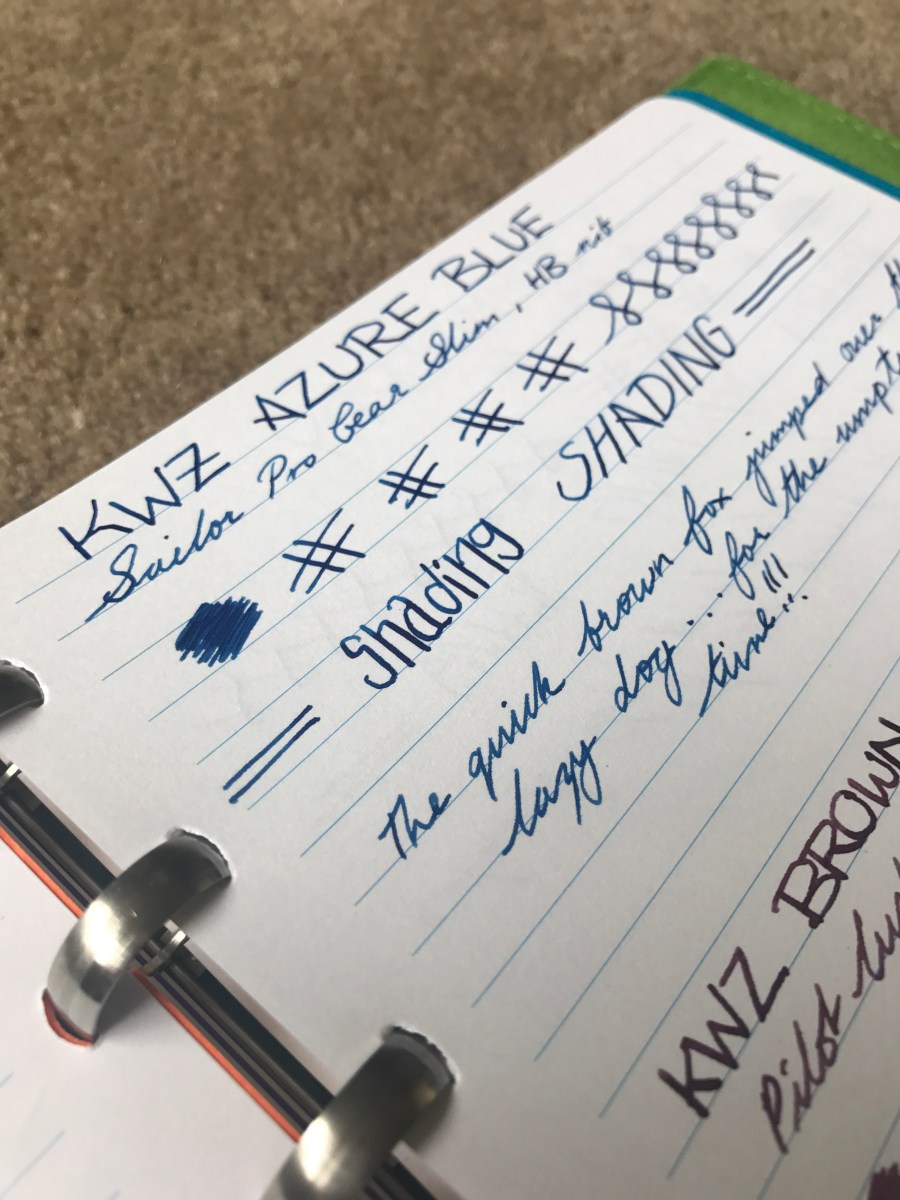 KWZ AZURE BLUE
Sailor Pro Gear Slim, HB nib
Shading SHADING
The quick brown fox jumped over
lazy dog... for the
time!!! !!!
KWZ BROWN
Pilot